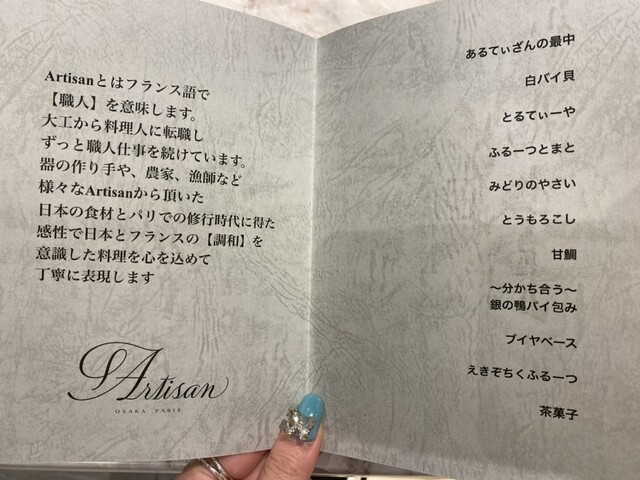 Artisanとはフランス語で
【職人】を意味します。
大工から料理人に転職し
ずっと職人仕事を続けています。
器の作り手や、農家、漁師など
様々なArtisanから頂いた
日本の食材とパリでの修行時代に得た
感性で日本とフランスの【調和】を
意識した料理を心を込めて
丁寧に表現します
Artisan
OSAKA PARIS
あるてぃざんの最中
白バイ貝
とるてぃーや
ふるーつとまと
みどりのやさい
とうもろこし
甘鯛
〜分かち合う〜
銀の鴨パイ包み
ブイヤベース
えきぞちくふるーつ
茶菓子